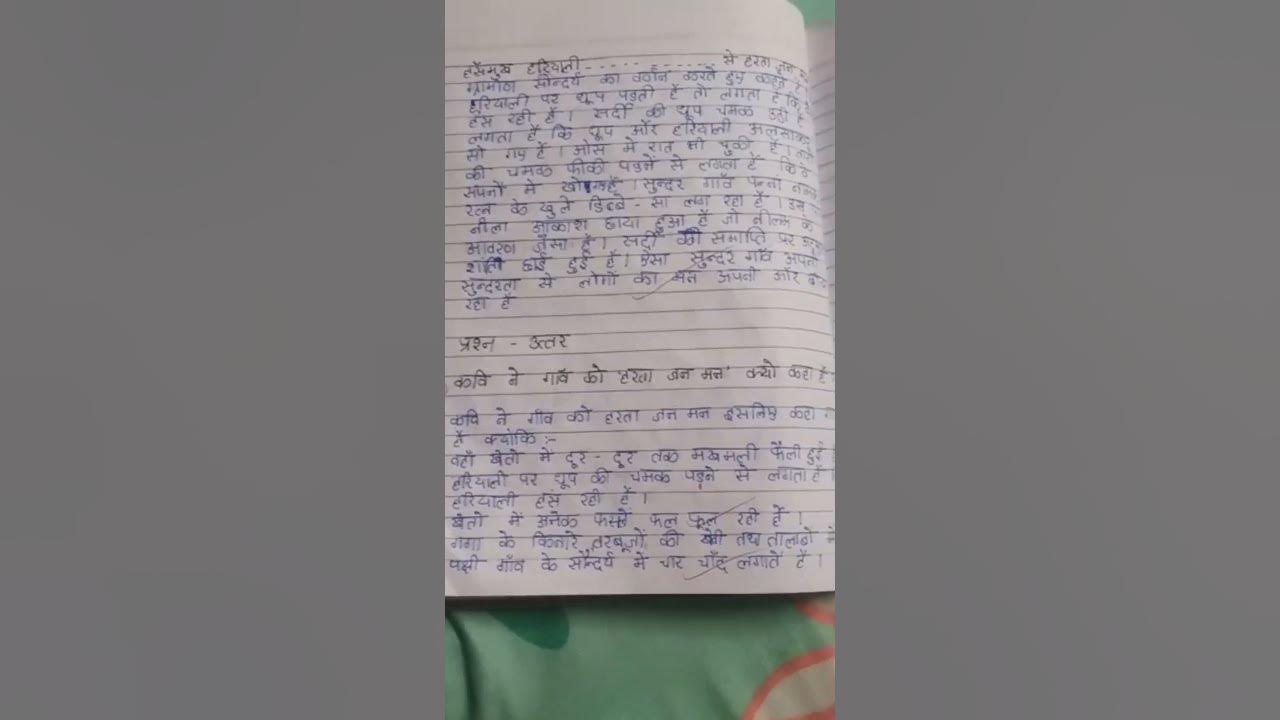 हँसमुख हरियाली - - - - - - - - - - से हरता जन
ग्रामीण सौन्दर्य का वर्णन करते हुए कहते
हरियाली पर धूप पड़ती है तो लगता है कि
हंस रही है। सर्दी की धूप चमक उठी है
लगता है कि धूप और हरियाली अलसाकर
सो गए हैं। ओस में रात भी चुकी है।
की चमक फीकी पड़ने से लगता है कि वे
सपनों में खो गए हैं। सुन्दर गाँव पन्ना नामक
रत्न के खुले डिब्बे - सा लग रहा है। उस
नीला आकाश छाया हुआ है जो नीलम के
आवरण जैसा है। सर्दी की समाप्ति पर
शांति छाई हुई है। ऐसा सुन्दर गाँव अपनी
सुन्दरता से लोगों का मन अपनी ओर
रहा है
प्रश्न - उत्तर
कवि ने गाँव को 'हरता जन मन' क्यो कहा है
कवि ने गाँव को हरता जन मन इसलिए कहा
है क्योंकि :-
वहाँ खेतो में दूर - दूर तक मखमली फैली हुई
हरियाली पर धूप की चमक पड़ने से लगता है
हरियाली हंस रही है।
खेतो में अनेक फसलें फल फूल रही हैं।
गंगा के किनारे तरबूजों की खेती तथा तालाबो में
पक्षी गाँव के सौन्दर्य में चार चाँद लगाते हैं।